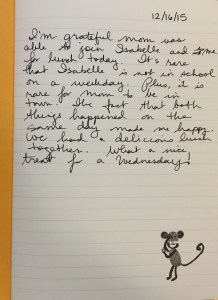 12/16/15
I'm grateful mom was
able to join Isabelle and me
for lunch today. It's rare
that Isabelle is not in school
on a weekday. Plus, it is
rare for mom to be in
town. The fact that both
things happened on the
same day made me happy.
We had a delicious lunch
together. What a nice
treat for a Wednesday!